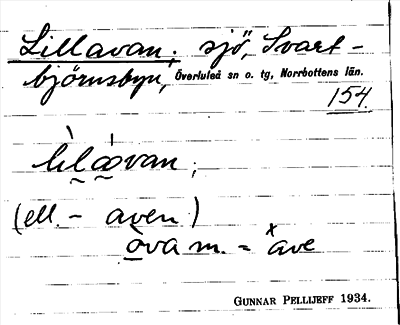 Lillavan; sjö, Svart-
björnsbyn, Överluleå sn o. tg, Norrbottens län.
154.
lilavan;
(ell. - aven)
ova m. = ˣave
GUNNAR PELLIJEFF 1934.